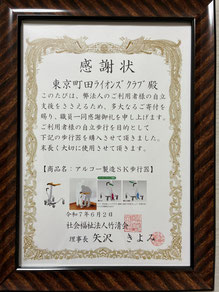 感謝状
東京町田ライオンズクラブ殿
このたびは、弊法人のご利用者様の自立
支援をささえるため、多大なるご寄付を
賜り、職員一同感謝御礼を申し上げます。
ご利用者様の自立歩行を目的として
下記の歩行器を購入させて頂きました。
末長く大切に使用させて頂きます。
【商品名：アルコー製造SK歩行器】
令和7年6月2日
社会福祉法人竹清会
理事長 矢沢 きよみ